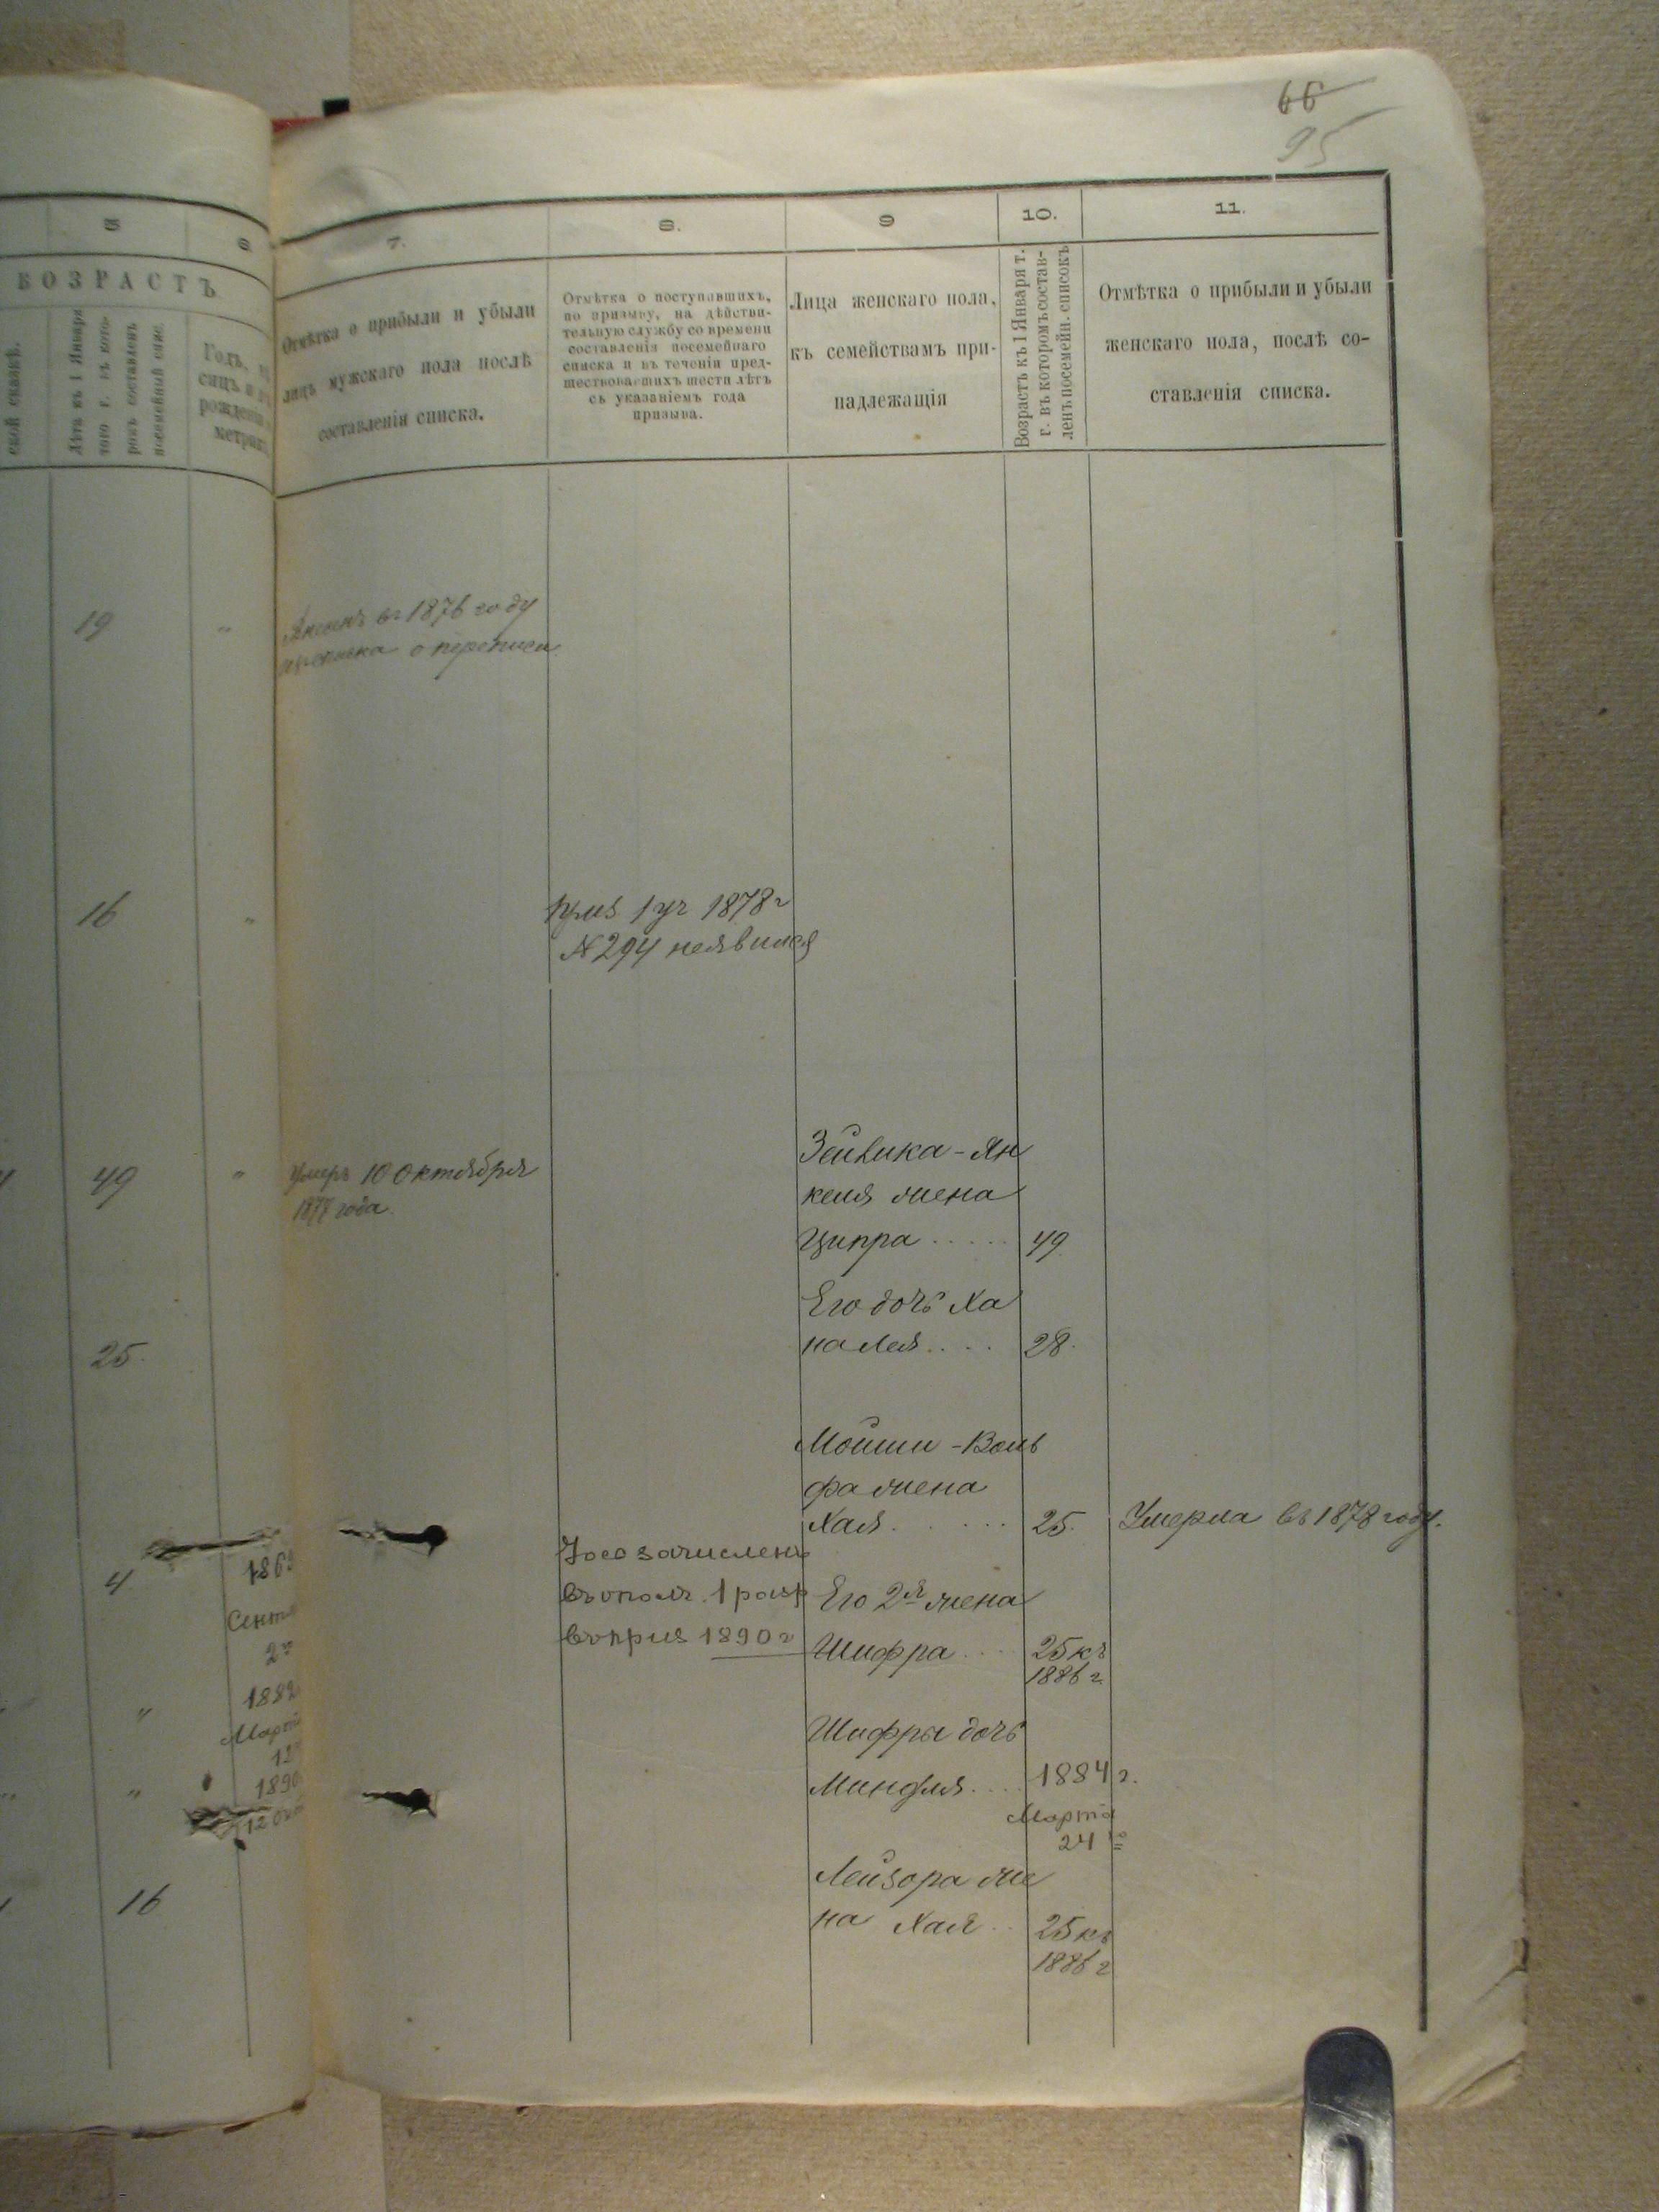 66
95
5
6
7.
8.
9
10.
11.
ВОЗРАСТЪ
Лѣта къ 1 Января
того г. въ кото-
ромъ составленъ
посемейный спис.
Отмѣтка о прибыли и убыли
лицъ мужскаго пола послѣ
составленія списка.
Отмѣтка о поступившихъ,
по призыву, на дѣйстви-
тельную службу со времени
составленія посемейнаго
списка и въ теченіи пред-
шествовавшихъ шести лѣтъ
съ указаніемъ года
призыва.
Лица женскаго пола,
къ семействамъ при-
надлежащія
Возрастъ къ 1 Января т.
г. въ которомъ состав-
ленъ посемейн. списокъ
Отмѣтка о прибыли и убыли
женскаго пола, послѣ со-
ставленія списка.
19 „
въ 1876 году
о переписи
16 „
приз 1 уч 1878 г
№ 294 неявился
49 „
умеръ 10 Октября
1877 года.
Зейвика-Ян
келя жена
Ципра 49
Его дочь Ха
на Лея 28.
25.
Мойши-Воль
фа жена
Хая 25. Умерла въ 1878 году.
4
186
Сент
2го
188
Март
12
1890
12
зачисленъ
въ опол. 1 разр
въ приз 1890 г
Его 2я жена
Шифра 25 къ
1886 г.
Шифры дочь
Миндля 1884 г.
Марта
24го
16
Лейзора же
на Хая 25 къ
1886 г